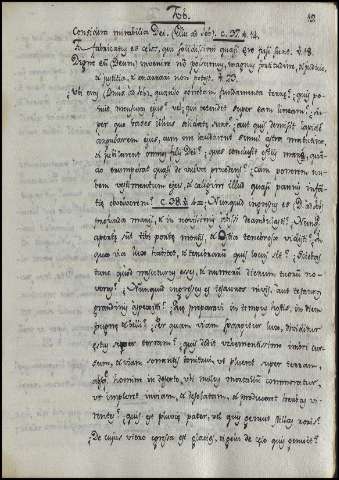 Job.
Considera mirabilia Dei. (Eliu ad Job). c. 37. v. 14.
Tu fabricatus es cælos, qui solidissimi quasi ære fusi sunt. v. 18.
Digne eū (Deum) invenire nō possumus, magnus fortitudine, et judicio,
et justitia, et enarrari non potest. v. 23.
Ubi eras (Dnus ad Job), quando ponebam fundamenta terræ? quis po-
suit mensuras ejus? vel quis tetendit super eam lineam?
per quo bases illius solidatæ sunt? aut quis demisit lapidē
angularem ejus, cum me laudarent simul astra matutina,
et jubilarent omnes filii Dei? quis conclusit ostiis mare, quā-
do erumpebat quasi de vulva procedens? cum ponerem nu-
bem vestimentum ejus, et caligine illud quasi pannis infan-
tiæ obvolverem? c. 38. v. 4
profunda maris, et in novissimis abyssi deambulasti?
apertæ sūt tibi portæ mortis, et ostia tenebrosa vidisti?
qua via lux habitet, et tenebrarum quis locus sit? Sciebas
tunc quod nasciturus esses, et numerum dierum tuorū no-
veras? Numquid ingressus es thesauros nivis, aut thesauros
grandinis aspexisti? Quæ præparavi in tempus hostis, in diem
pugnæ et belli? Per quam viam spargitur lux, dividitur
æstus super terram? quis dedit vehementissimo imbri cur-
sum, et viam sonantis tonitrui, ut plueret super terram,
absq. homine in deserto, ubi nullus mortalium commoratur,
ut impleret inviam, et desolatam, et produceret herbas vi-
rentes? quis est pluviæ pater, vel quis genuit stillas roris?
De cujus utero egressa est glacies, et gelu de cælo quis genuit?